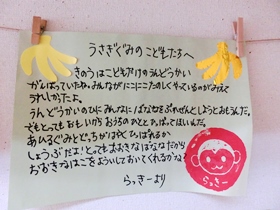 うさぎぐみのこどもたちへ
きのうはこどもだけのうんどうかい
がんばっていたね。みんながにこにこたのしくやっているのがみえて
うれしかったよ。
うんどうかいのひにみんなにばななをぷれぜんとしようとおもうんだ。
でもとってもおもいからおうちのひととひっぱってほしいんだ。
あひるぐみとどっちがはやくひっぱれるか
しょうぶだよ!とってもおおきなばななだから
おおきなはこをよういしておいてくれるかな?
らっきーより
らっきー